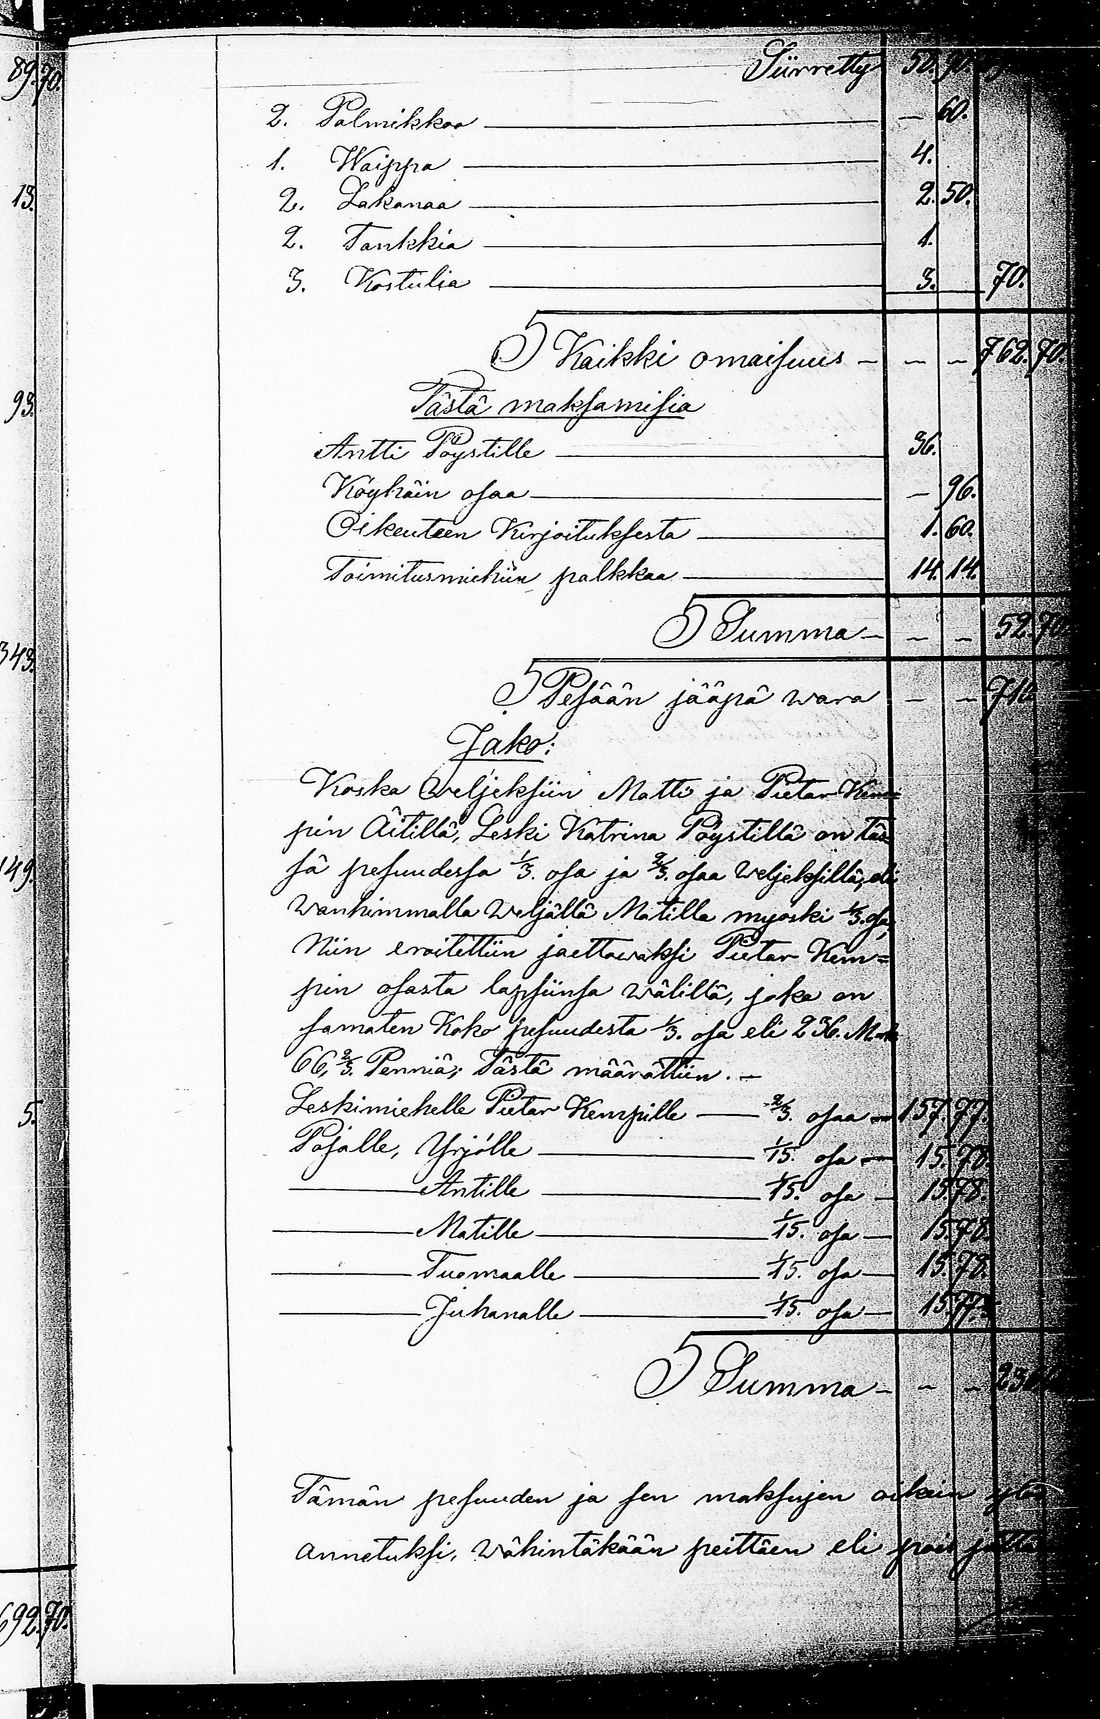 89. 70.
13.
93.
343.
149.
5.
692. 70.
Siirretty
2. Palmikkoa — 60.
1. Waippa 4.
2. Lakanaa 2. 50.
2. Tankkia 1.
3. Kostulia 3. 70.
S Kaikki omaisuus — — — 762. 70.
Tästä maksamisia
Antti Pöystille 36.
Köyhäin osaa — 96.
Oikeuteen Kirjoituksesta 1. 60.
Toimitusmiehiin palkkaa 14. 14.
S Summa — — — 52. 70.
S Pesään jääpä wara — — —
Jako:
Koska Weljeksiin Matti ja Pietar Kem=
pin Äitillä, Leski Katrina Pöystillä on täs
sä pesuudessa 1/3. osa ja 2/3. osaa Weljeksillä, eli
Wanhimmalla Weljällä Matilla myöski 1/3. osa,
Niin eroitettiin jaettawaksi Pietar Kem=
pin osasta lapsiinsa wälillä, joka on
samaten Koko pesuudesta 1/3. osa eli 236. Mark
66, 2/3. Penniä; Tästä määrättiin. —
Leskimiehelle Pietar Kempille — 2/3. osaa — 157. 77.
Pojalle, Yrjölle — 1/15. osa — 15. 78.
— Antille — 1/15. osa — 15. 78.
— Matille — 1/15. osa — 15. 78.
— Tuomaalle — 1/15. osa — 15. 78.
— Juhanalle — 1/15. osa — 15. 77.
S Summa — — —
Tämän pesuuden ja sen maksujen oikein
annetuksi, wähintäkään peittäen eli pois